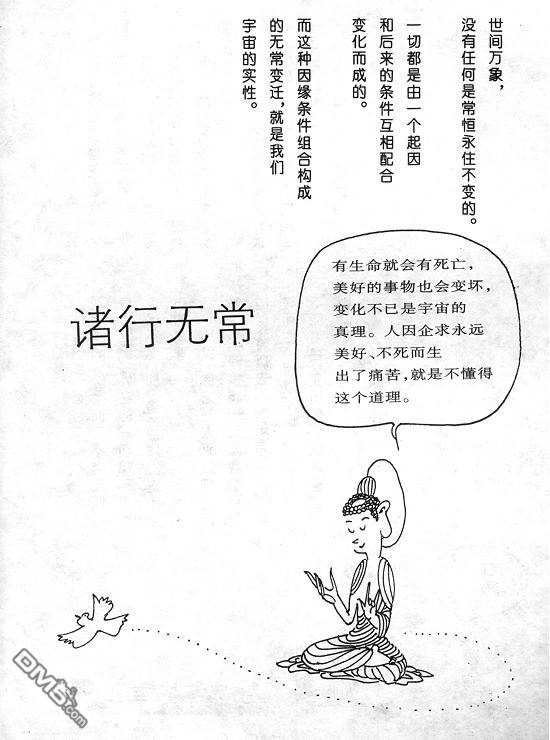 世间万象，
没有任何是常恒永住不变的。
一切都是由一个起因
和后来的条件互相配合
变化而成的。
而这种因缘条件组合构成
的无常变迁，就是我们
宇宙的实性。
诸行无常
有生命就会有死亡，
美好的事物也会变坏，
变化不已是宇宙的
真理。人因企求永远
美好、不死而生
出了痛苦，就是不懂得
这个道理。
DM5.com